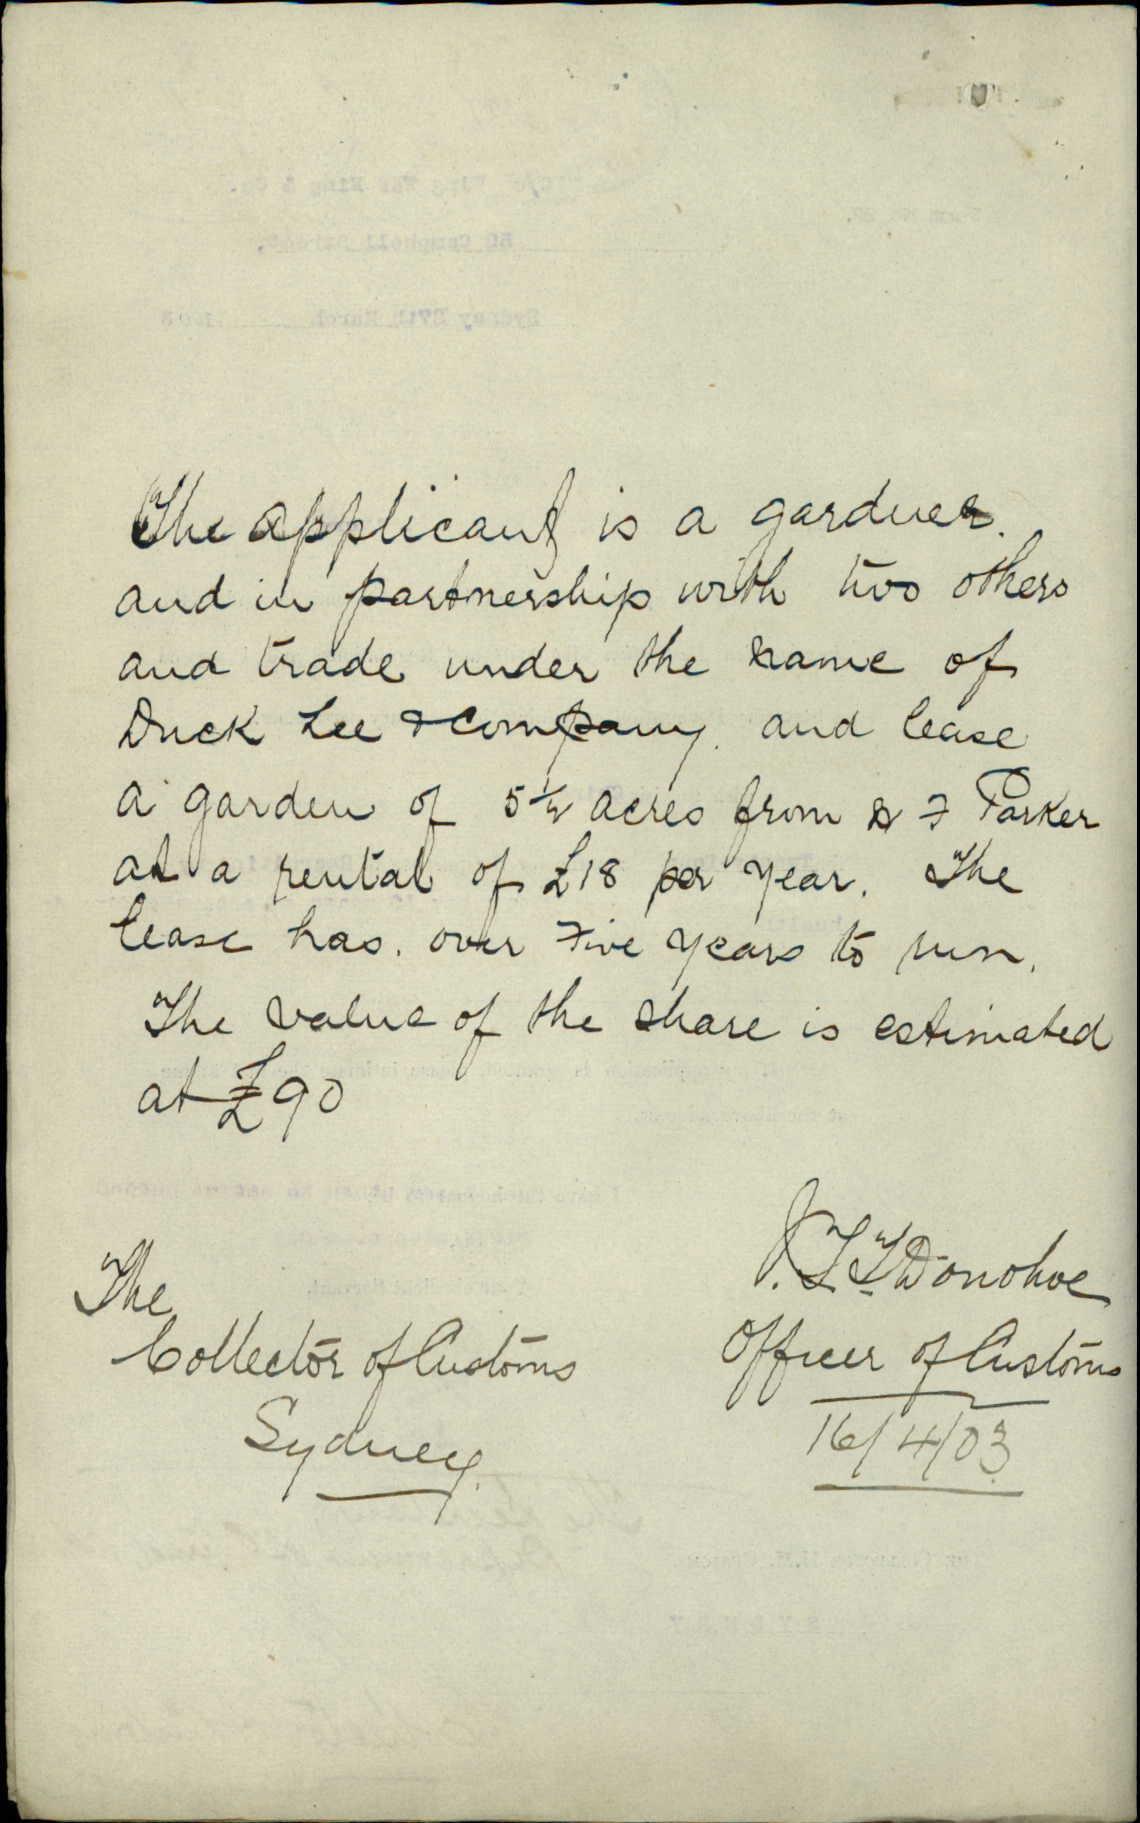 The applicant is a gardner.
and in partnership with two others
and trade under the name of
Duck Lee & Company. and lease
a garden of 5 1/2 acres from F Parker
at a rental of £18 per year. The
lease has. over Five years to run.
The value of the share is estimated
at £90
J. T. T. Donohoe
The
Collector of Customs
Officer of Customs
Sydney.
16/4/03